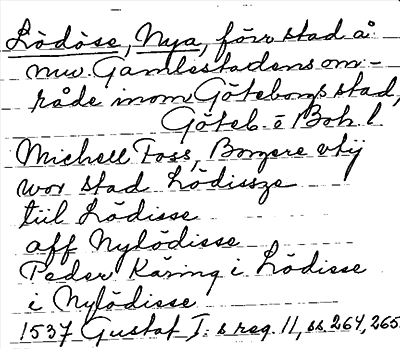 Lödöse, Nya, förr stad å
nuv. Gamlestadens om-
råde inom Göteborgs stad,
Göteb. o Boh l
Michell Foss, Borgere vtij
wor stad Lödissze
tiil Lödisse
aff Nylödisse
Peder Käring i Lödisse
i Nylödisse
1537 Gustaf I:s reg. 11, ss. 264, 265.